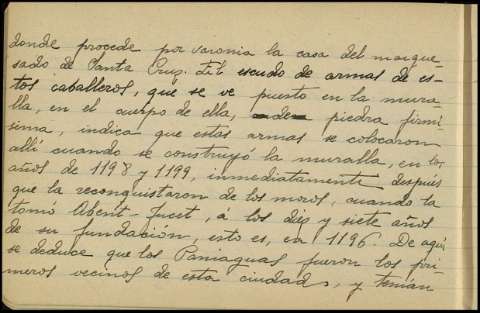 donde procede por varonia la casa del marque-
sado de Santa Cruz. El escudo de armas de es-
tos caballeros, que se ve puesto en la mura-
lla, en el cuerpo de ella, de piedra firmí
sima, indica que estas armas se colocaron
allí cuando se construyó la muralla, en los
años de 1198 y 1199, inmediatamente después
que la reconquistaron de los moros, cuando la
tomó Abent-Jucet, á los diez y siete años
de su fundación, esto es, en 1196. De aquí
se deduce que los Paniaguas fueron los pri-
meros vecinos de esta ciudad, y tenían